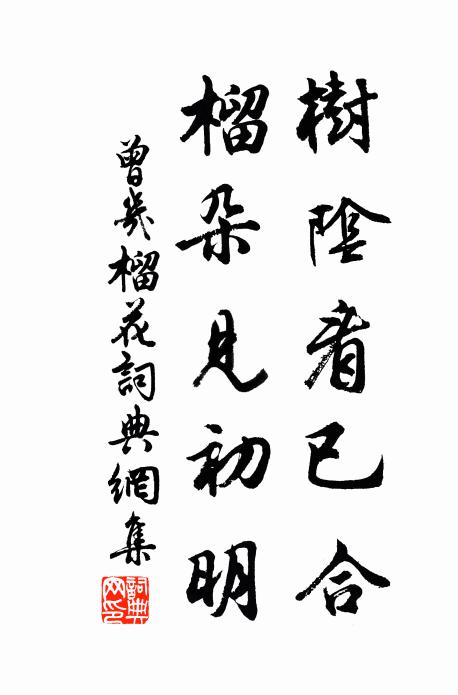 樹陰看已合
榴朵見初明
曾幾榴花詞典網集
詞典網印